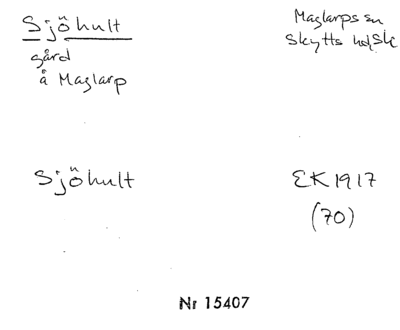 Sjöhult
gård
å Maglarp
Maglarps sn
Skytts hd Sk
Sjöhult
EK 1917
(70)
Nr 15407